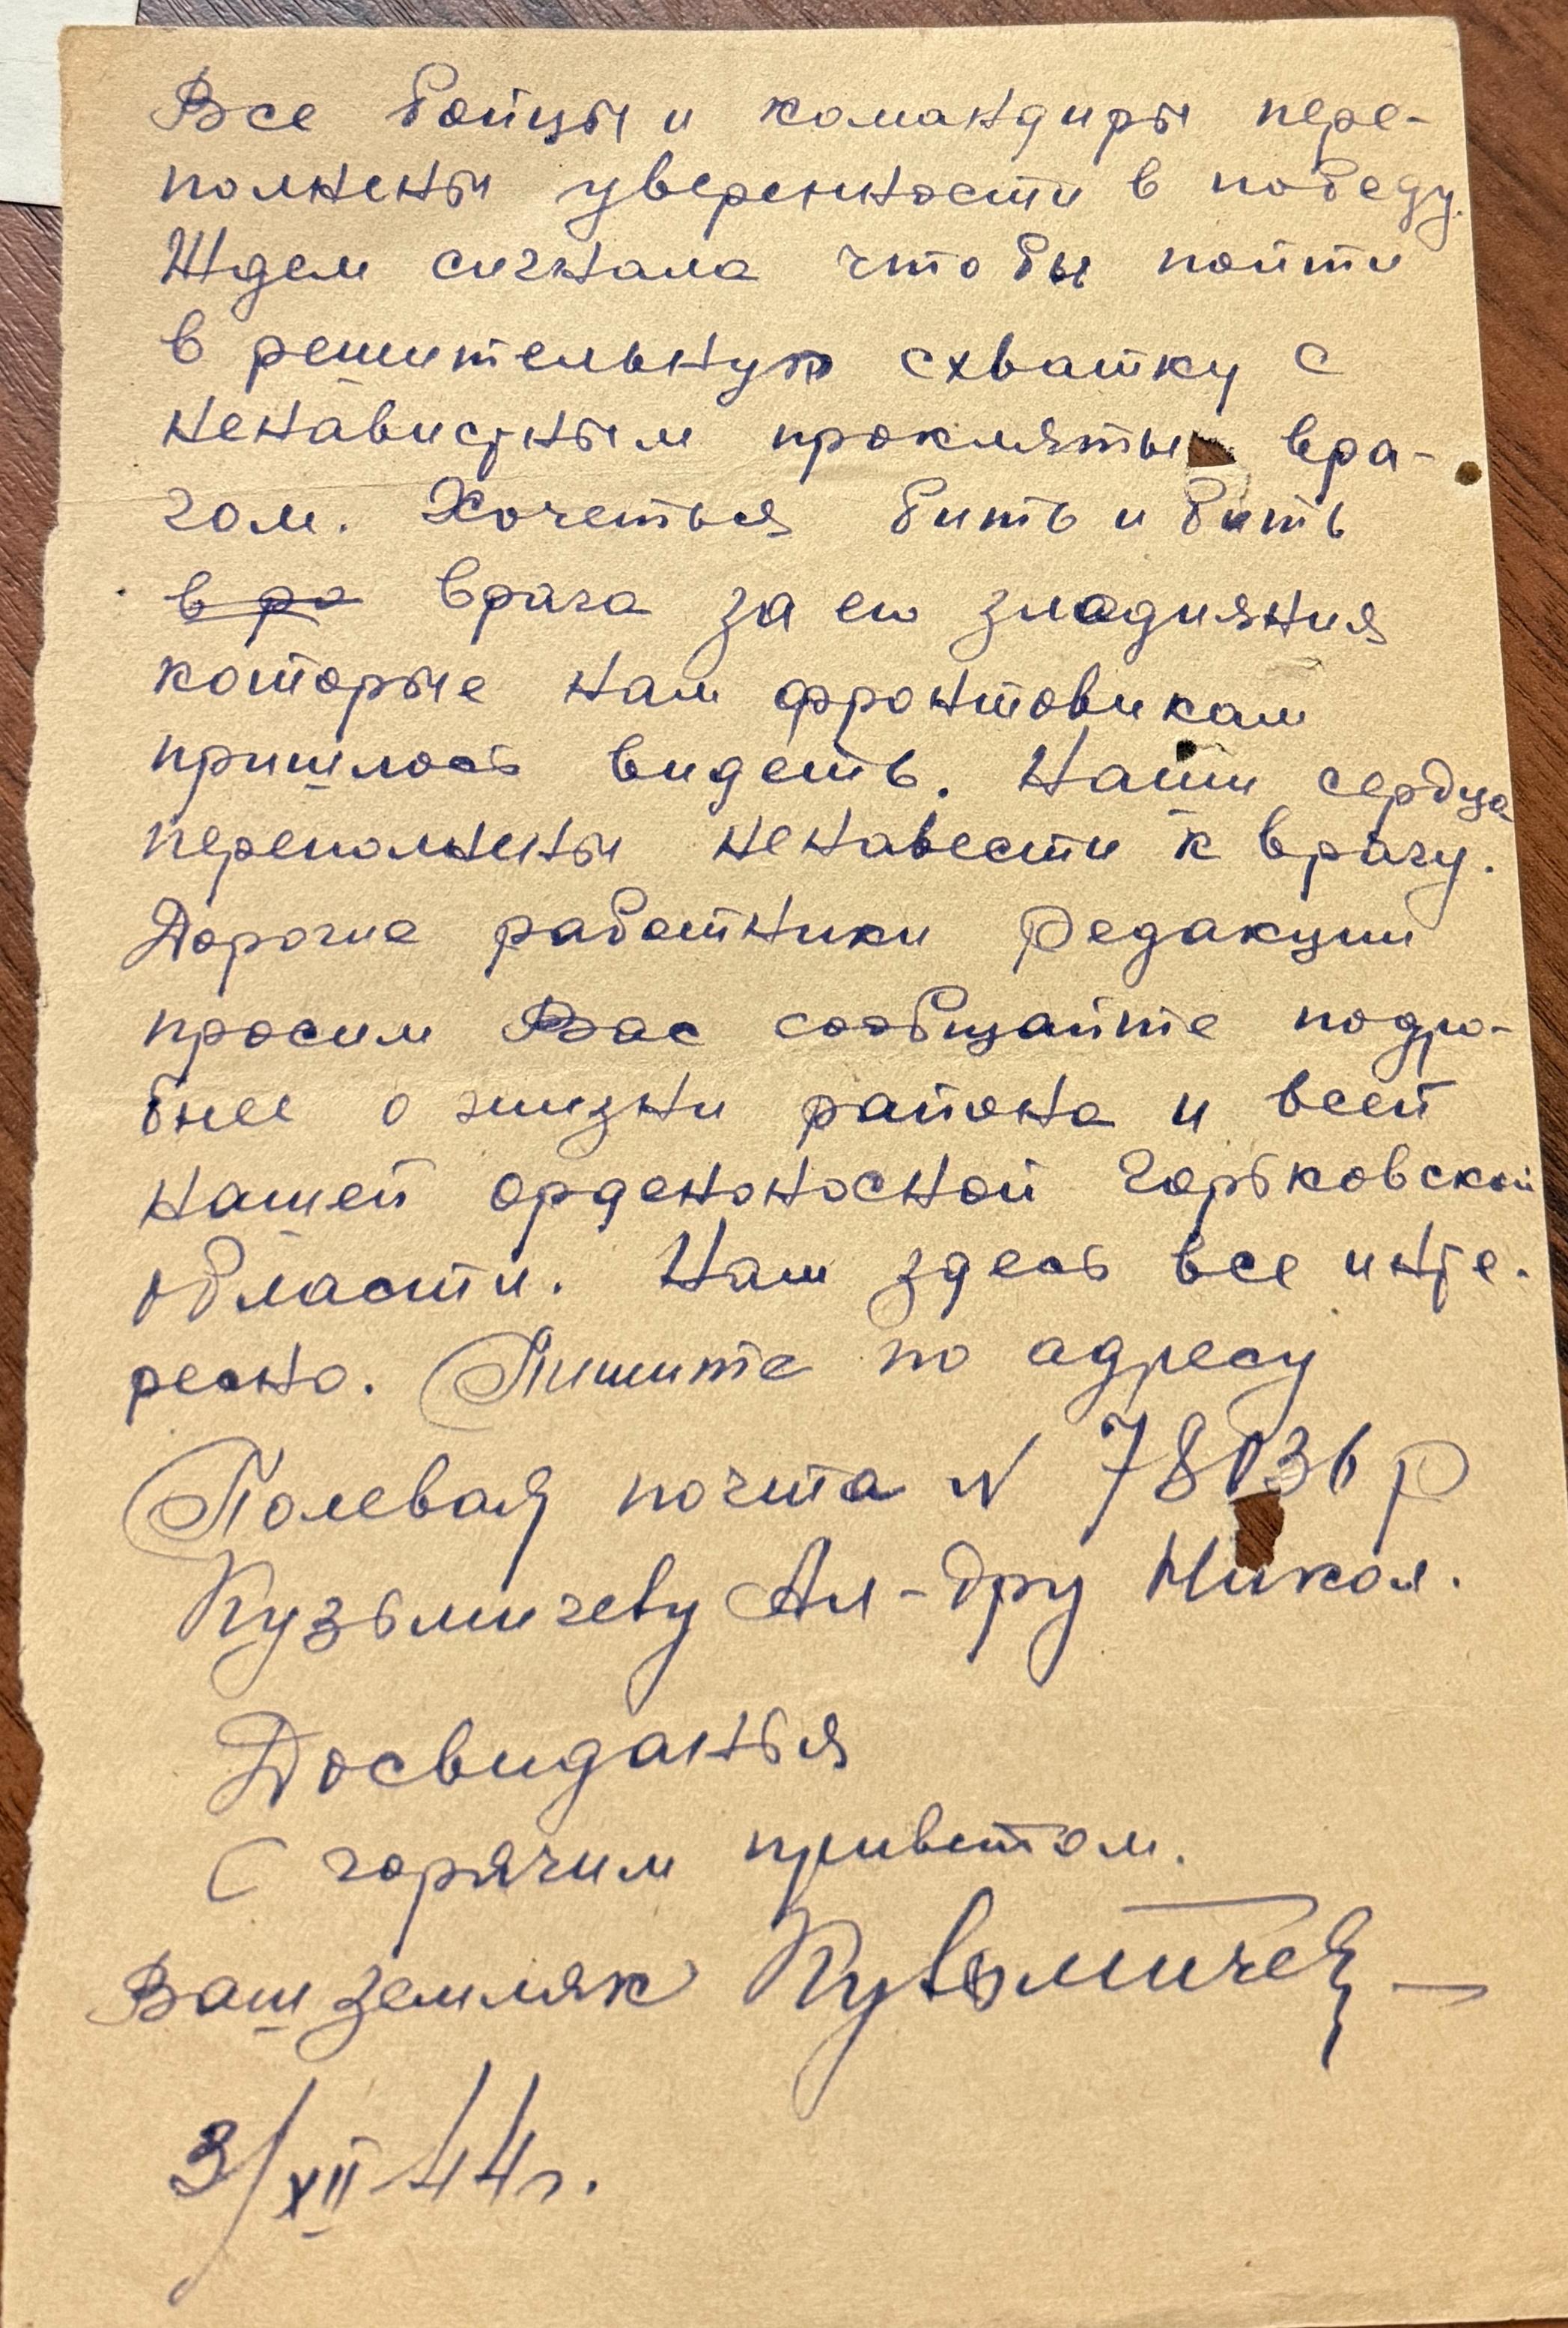 Все бойцы и командиры пере-
полнены уверенности в победу.
Ждем сигнала что бы пойти
в решительную схватку с
ненавистным прокляты вра-
гом. Хочеться бить и бить
в ра врага за ею злодияния
которые нам фронтовикам
пришлось видеть. Наши сердца
переполнены ненавести к врагу.
Дорогие работники Редакции
просим Вас сообщайте подро-
бнее о жизни района и всей
нашей орденоносной Горьковской
области. Нам здесь все инте-
ресно. Пишите по адресу
Полевая почта N 78036 р
Кузьмичеву Ал-дру Никол.
Досвиданья
С горячим приветом.
Ваш земляк Кузьмичев
3/XII 44г.